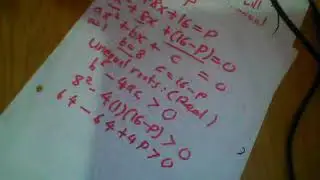 +8x+16=P
+8x+(16-P)=0
ax²+bx+c=0
b=8 c=16-P
Unequal roots: (real)
b²-4ac>0
8²-4(1)(16-P)>0
64-64+4P>0
will